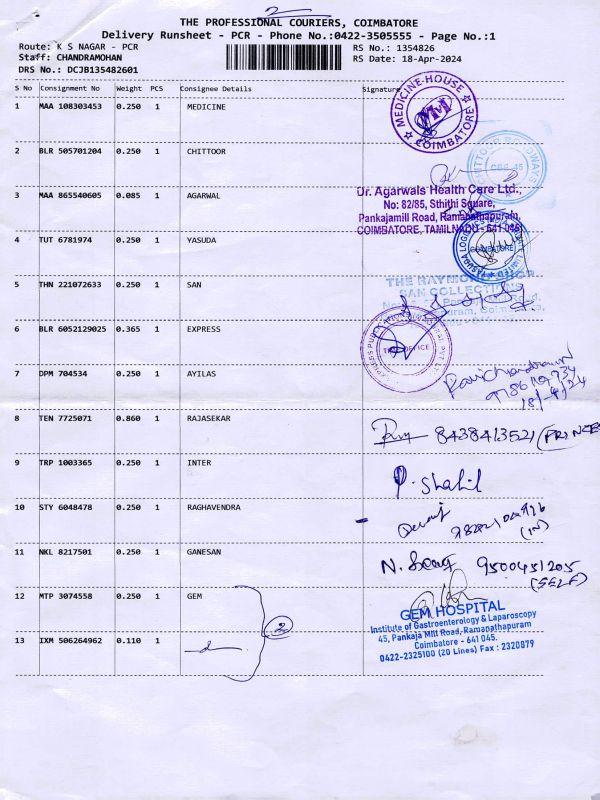 2
THE PROFESSIONAL COURIERS, COIMBATORE
Delivery Runsheet - PCR - Phone No.:0422-3505555 - Page No.:1
Route: K S NAGAR - PCR
RS No.: 1354826
Staff: CHANDRAMOHAN
RS Date: 18-Apr-2024
DRS No.: DCJB135482601
S No Consignment No Weight PCS Consignee Details Signature
1 MAA 108303453 0.250 1 MEDICINE
MEDICINE HOUSE
COIMBATORE
2 BLR 505701204 0.250 1 CHITTOOR
3 MAA 865540605 0.085 1 AGARWAL
Dr. Agarwals Health Care Ltd.,
No: 82/85, Sthithi Square,
Pankajamill Road, Ramanathapuram,
COIMBATORE, TAMILNADU - 641 045
4 TUT 6781974 0.250 1 YASUDA
COIMBATORE
5 THN 221072633 0.250 1 SAN
THE RAYMOND SHOP
SAN COLLECTIONS
6 BLR 6052129025 0.365 1 EXPRESS
7 DPM 704534 0.250 1 AYILAS
18/4/24
8 TEN 7725071 0.860 1 RAJASEKAR
8438413521 (PRINCE)
9 TRP 1003365 0.250 1 INTER
P. Shahil
10 STY 6048478 0.250 1 RAGHAVENDRA
11 NKL 8217501 0.250 1 GANESAN
9500451205
(SELF)
12 MTP 3074558 0.250 1 GEM
2
13 IXM 506264962 0.110 1
GEM HOSPITAL
Institute of Gastroenterology & Laparoscopy
45, Pankaja Mill Road, Ramanathapuram
Coimbatore - 641 045.
0422-2325100 (20 Lines) Fax : 2320879